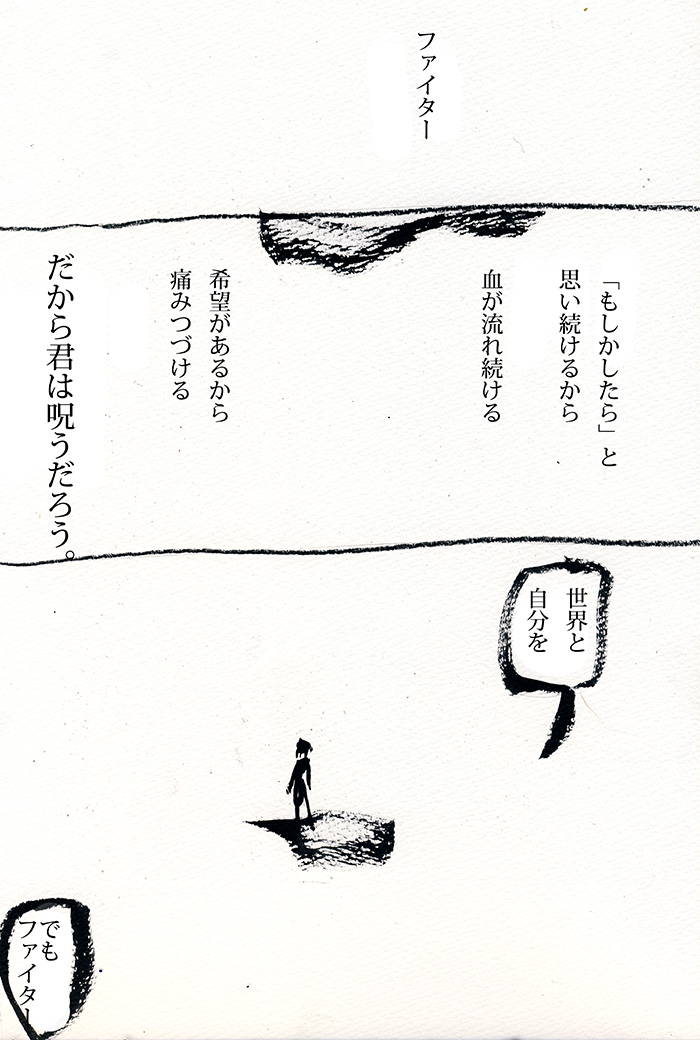 ファイター
「もしかしたら」と
思い続けるから
血が流れ続ける
希望があるから
痛みつづける
だから君は呪うだろう。
世界と
自分を
でも
ファイター